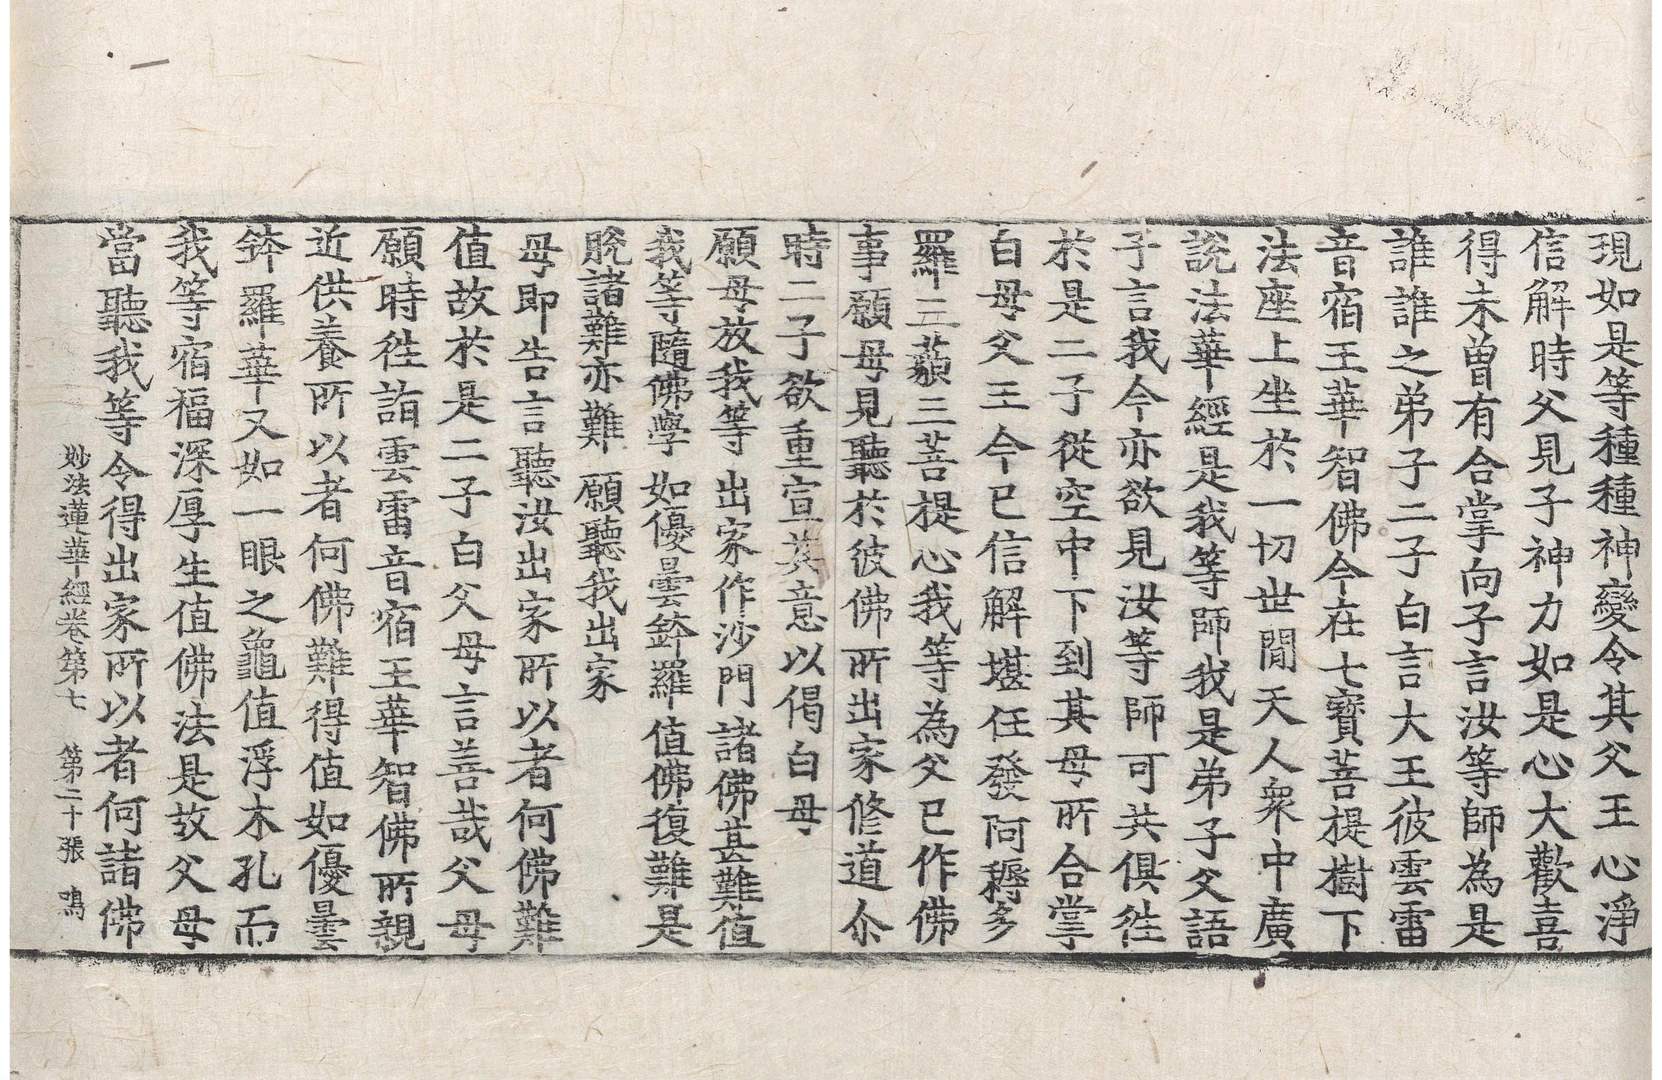 現如是等種種神變令其父王心淨
信解時父見子神力如是心大歡喜
得未曾有合掌向子言汝等師為是
誰誰之弟子二子白言大王彼雲雷
音宿王華智佛今在七寶菩提樹下
法座上坐於一切世閒天人衆中廣
說法華經是我等師我是弟子父語
子言我今亦欲見汝等師可共俱徃
於是二子從空中下到其母所合掌
白母父王今已信解堪任發阿耨多
羅三藐三菩提心我等為父已作佛
事願母見聽於彼佛所出家修道尒
時二子欲重宣其意以偈白母
願母放我等 出家作沙門 諸佛甚難值
我等隨佛學 如優曇鉢羅 值佛復難是
脫諸難亦難 願聽我出家
母即告言聽汝出家所以者何佛難
值故於是二子白父母言善哉父母
願時徃詣雲雷音宿王華智佛所親
近供養所以者何佛難得值如優曇
鉢羅華又如一眼之龜值浮木孔而
我等宿福深厚生值佛法是故父母
當聽我等令得出家所以者何諸佛
妙法蓮華經卷第七 第二十張 鳴